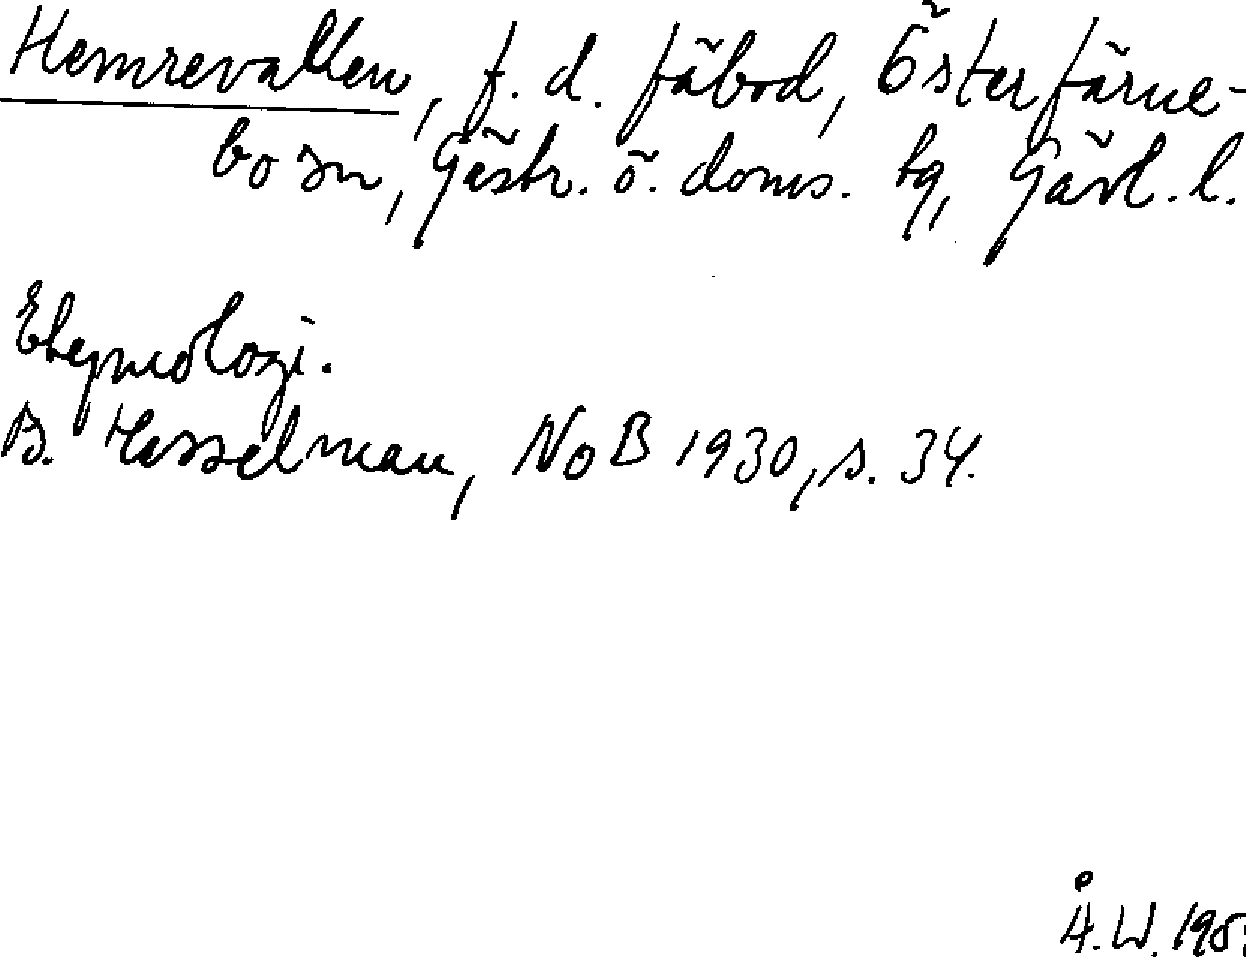 Hemrevallen, f. d. fäbod, Österfärne-
bo sn, Gästr. ö. doms. tg, Gävl. l.
Etymologi.
B. Hesselman, NoB 1930, s. 34.
Å. W.